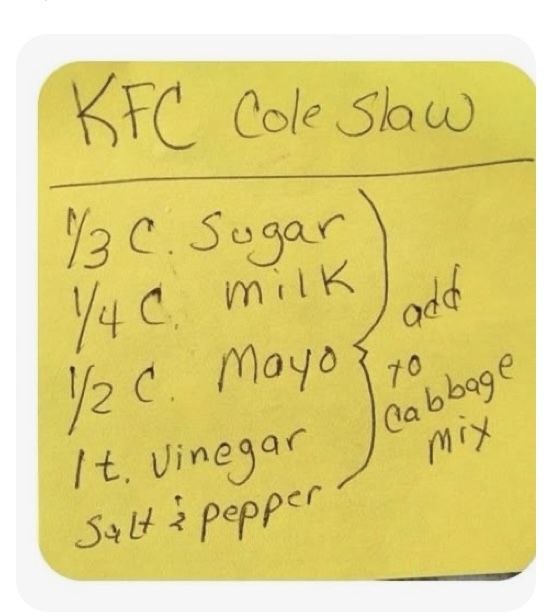 KFC Cole Slaw
1/3 C. Sugar
1/4 C. milk
1/2 C. Mayo
1 t. Vinegar
Salt & pepper
add
to
cabbage
mix